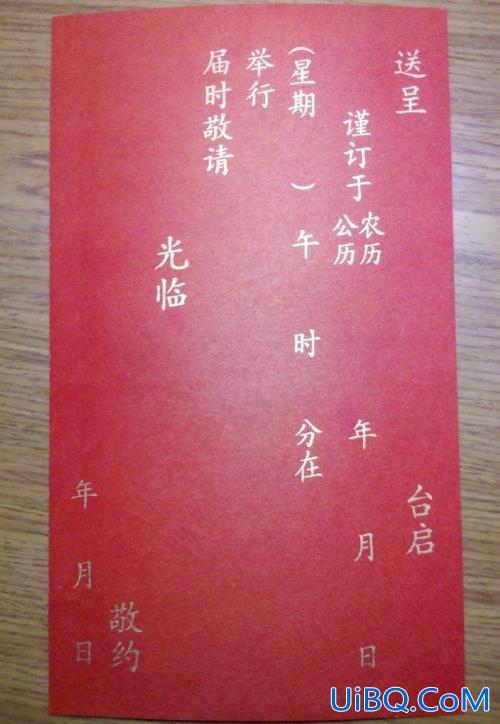 送呈 台启
谨订于 农历 公历 年 月 日
(星期 ) 午 时 分在
举行
届时敬请
光临
敬约
年 月 日
UiBQ.CoM